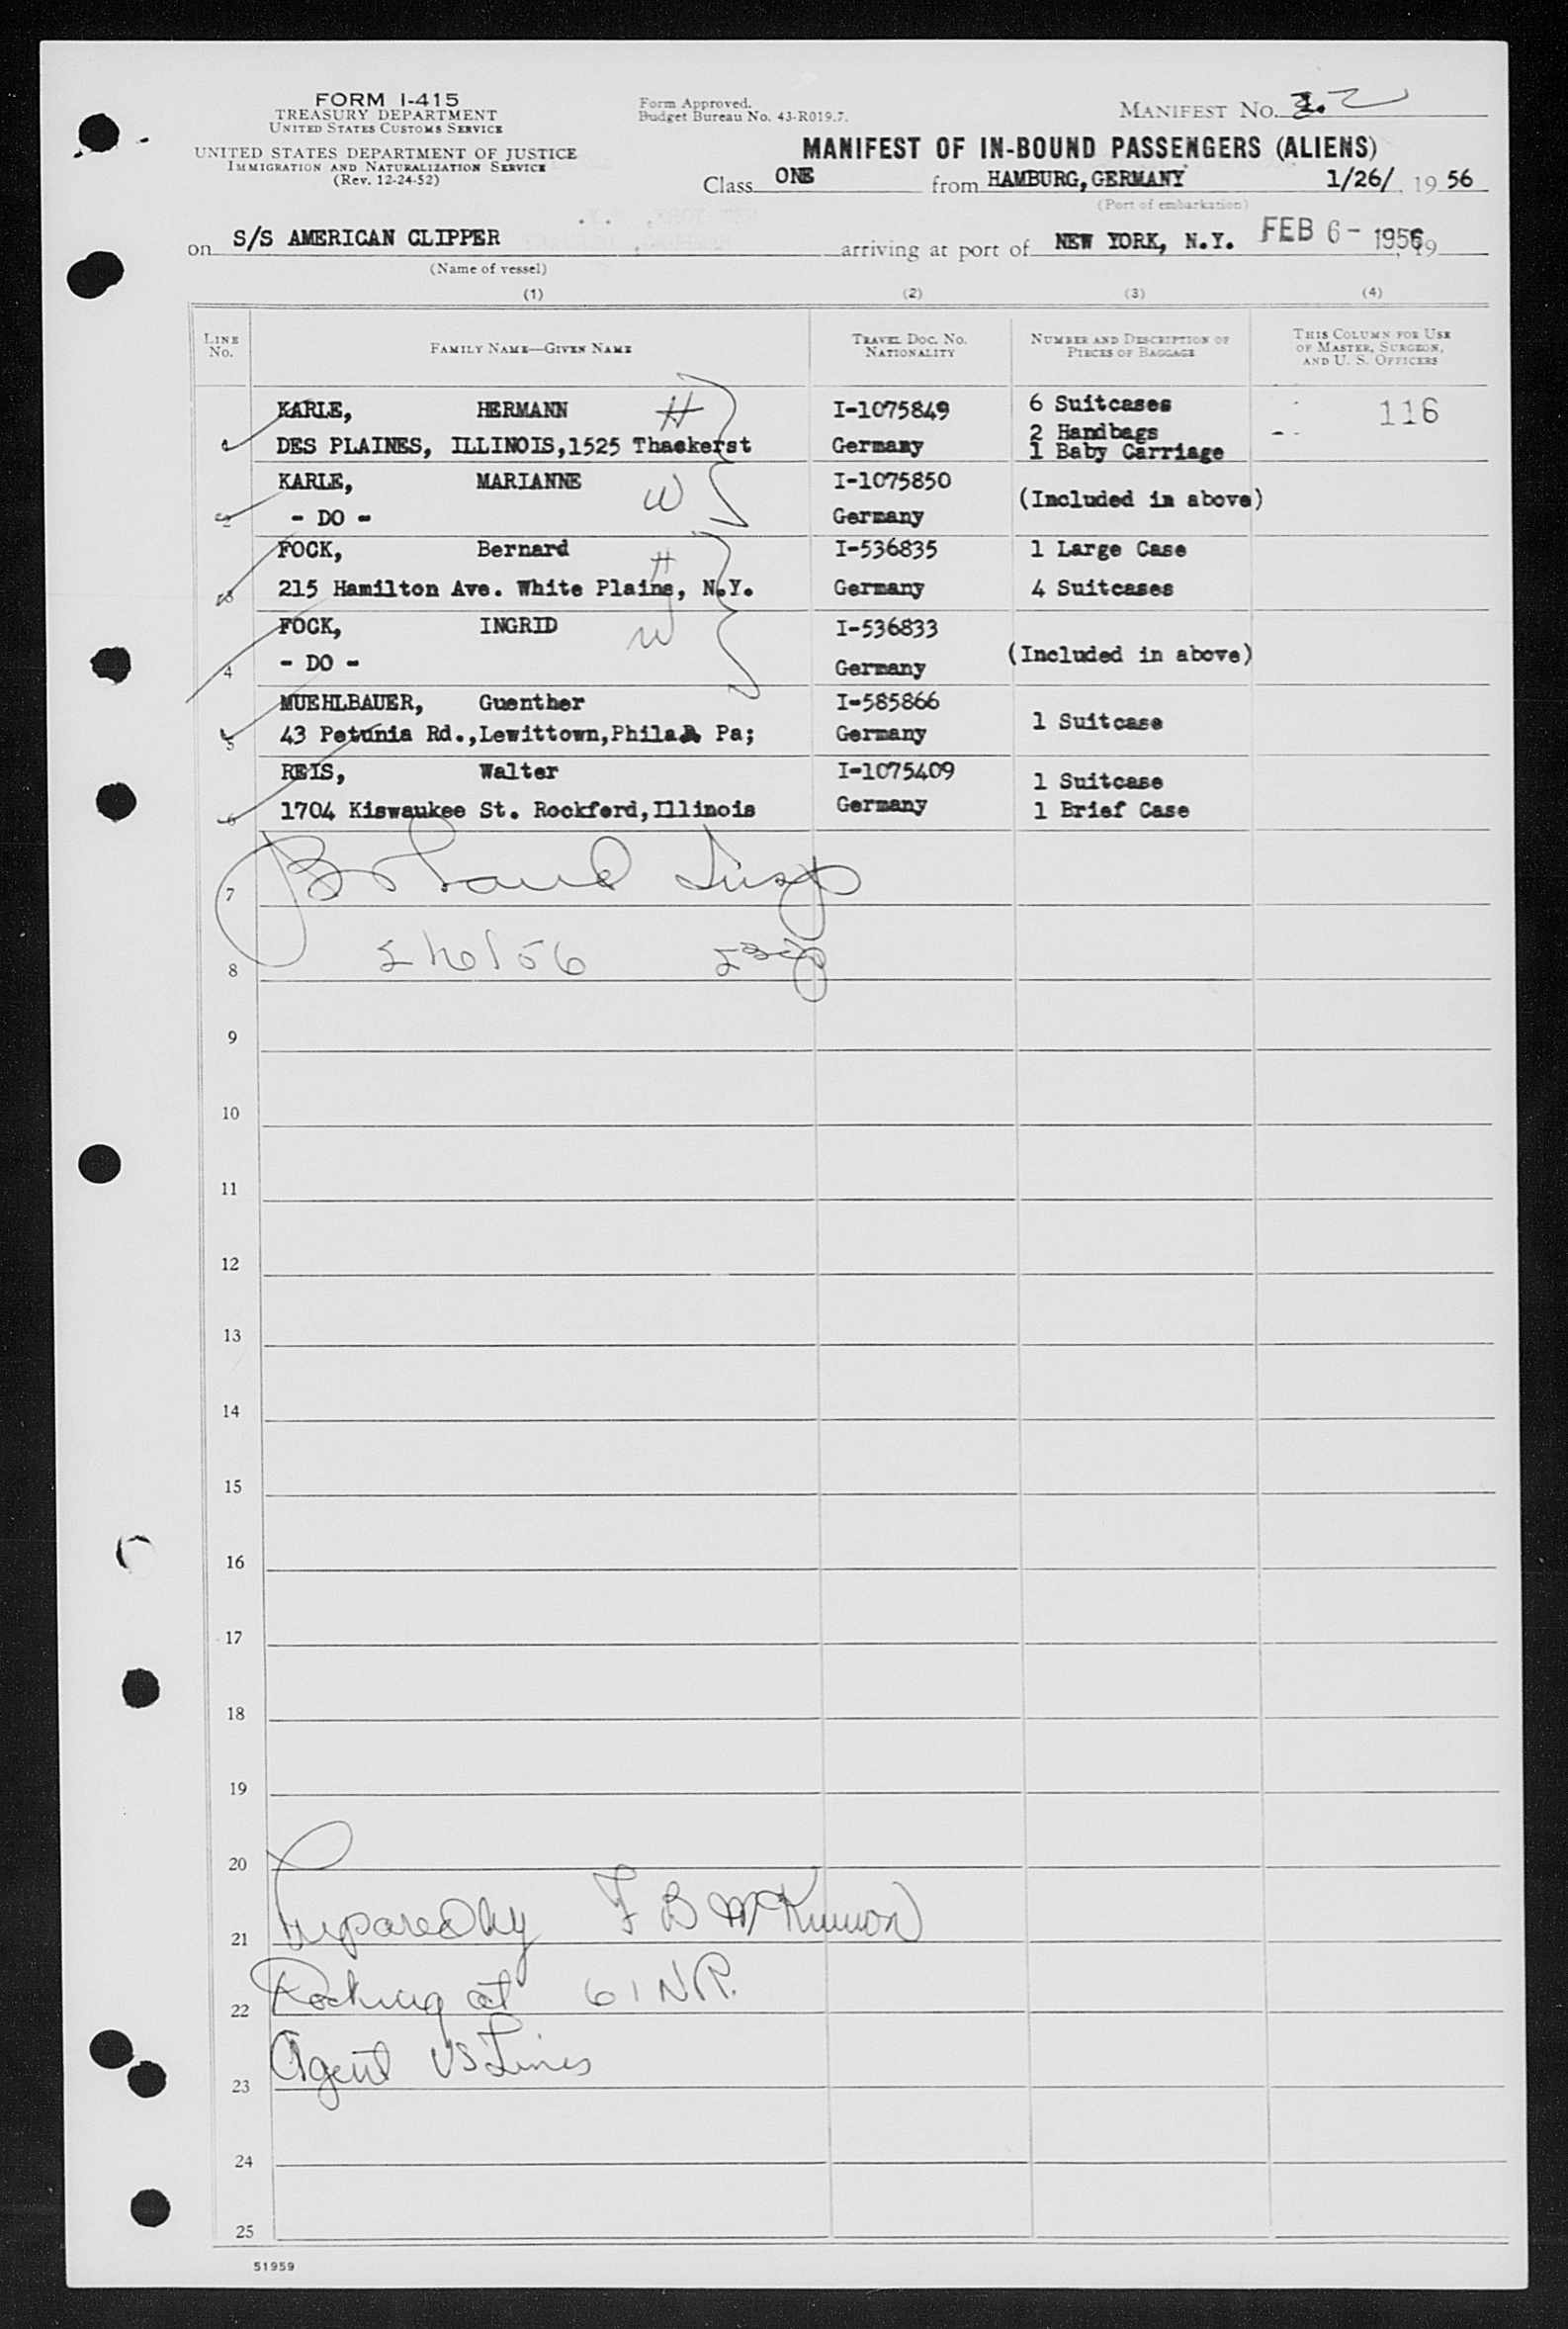 FORM I-415
TREASURY DEPARTMENT
UNITED STATES CUSTOMS SERVICE
UNITED STATES DEPARTMENT OF JUSTICE
IMMIGRATION AND NATURALIZATION SERVICE
(Rev. 12-24-52)
Form Approved.
Budget Bureau No. 43-R019.7.
MANIFEST No. 2
MANIFEST OF IN-BOUND PASSENGERS (ALIENS)
Class ONE from HAMBURG, GERMANY 1/26/, 19 56
(Port of embarkation)
on S/S AMERICAN CLIPPER arriving at port of NEW YORK, N.Y. FEB 6 - 1956, 19
(Name of vessel)
(1) (2) (3) (4)
LINE No. FAMILY NAME—GIVEN NAME TRAVEL DOC. NO. NATIONALITY NUMBER AND DESCRIPTION OF PIECES OF BAGGAGE THIS COLUMN FOR USE OF MASTER, SURGEON, AND U. S. OFFICERS
KARLE, HERMANN H I-1075849 6 Suitcases 116
2 Handbags
1 DES PLAINES, ILLINOIS,1525 Thackerst Germany 1 Baby Carriage
KARLE, MARIANNE W I-1075850 (Included in above)
2 - DO - Germany
FOCK, Bernard H I-536835 1 Large Case
3 215 Hamilton Ave. White Plains, N.Y. Germany 4 Suitcases
FOCK, INGRID W I-536833
4 - DO - Germany (Included in above)
MUEHLBAUER, Guenther I-585866 1 Suitcase
5 43 Petunia Rd.,Lewittown,Phila Pa; Germany
REIS, Walter I-1075409 1 Suitcase
6 1704 Kiswaukee St. Rockford,Illinois Germany 1 Brief Case
7
8 2/6/56
9
10
11
12
13
14
15
16
17
18
19
20
21 Prepared by F B McKinnon
22 Docking at 61 NR.
23 Agent US Lines
24
25
51959